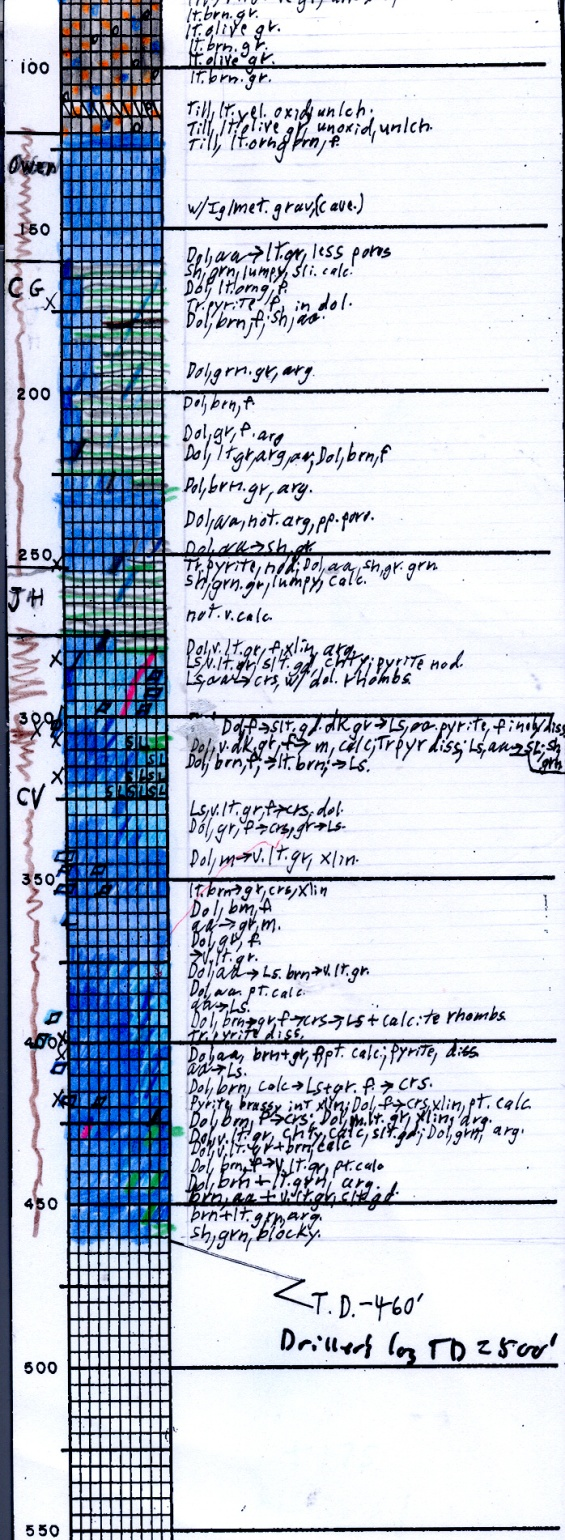 lt.brn.gr.
lt.olive gr.
lt.brn.gr.
lt.olive gr.
100
lt.brn.gr.
Till, lt.yel. oxid, unlch.
Till, lt.olive gr, unoxid, unlch.
Till, lt.orng brn, f.
Owen
w/Ig/met. grav, (cave.)
150
Dol, aa → lt.gr, less poros
Sh, grn, lumpy, sli. calc.
CG
Dol, lt.orng, f.
X
Tr. pyrite, f, in dol.
Dol, brn, f, sh, aa
Dol, grn.gr, arg.
200
Dol, brn, f.
Dol, gr, f. arg
Dol, lt gr, arg, aa, Dol, brn, f
Dol, brn.gr, arg.
Dol, aa, not. arg, pp. poro.
Dol, aa → sh, gr.
250
X
Tr. pyrite, nod, Dol, aa, sh, gr. grn
Sh, grn.gr, lumpy, calc.
JH
not v. calc.
Dol, v.lt.gr, f, xlin, arg.
X
Ls, v.lt.gr, slt.gd, chty, pyrite nod.
Ls, aa → crs, w/ dol. rhombs
300
Dol, f → slt.gd. dk.gr → Ls, aa. pyrite, f in ob/diss
SL
Dol, v.dk.gr, f → m, calc, Tr pyr diss; Ls, aa → SL; Sh grn
SL
Dol, brn, f, → lt.brn, → Ls.
X
SLSL
CV
SLSLSL
Ls, v.lt.gr, f → crs, dol.
Dol, gr, f → crs, gr → Ls.
Dol, m → v.lt.gr, xlin.
350
lt.brn → gr, crs, xlin
Dol, brn, f.
aa → gr, m.
Dol, gr, f.
→ v.lt.gr.
Dol, aa → Ls. brn → v.lt.gr.
Dol, aa pt. calc.
aa → Ls.
Dol, brn → gr, f → crs → Ls + calcite rhombs
Tr. pyrite diss.
400
X
Dol, aa, brn + gr, f, pt. calc; pyrite, diss
aa → Ls.
Dol, brn, calc → Ls + gr. f. → crs.
X
Pyrite brassy int xlin; Dol, f → crs, xlin, pt. calc
Dol, brn, f → crs. Dol, m. lt. gr, xlin, arg.
Dol, v.lt.gr, chty, calc, slt.gd; Dol, grn, arg.
Dol, v.lt.gr + brn, calc
Dol, brn, f → v.lt.gr, pt.calc
Dol, brn + lt.grn, arg.
brn, aa + v.lt.gr, slt.gd.
450
brn + lt. grn, arg.
sh, grn, blocky.
T.D.-460'
Drillers log TD = 500'
500
550